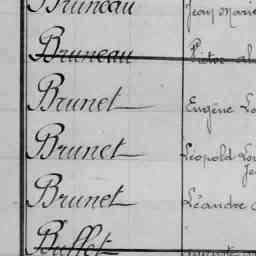 Bruneau Jean Marie
Bruneau Victor al
Brunet Eugène Lo
Brunet Léopold Lou
Je
Brunet Léandre
Buffet